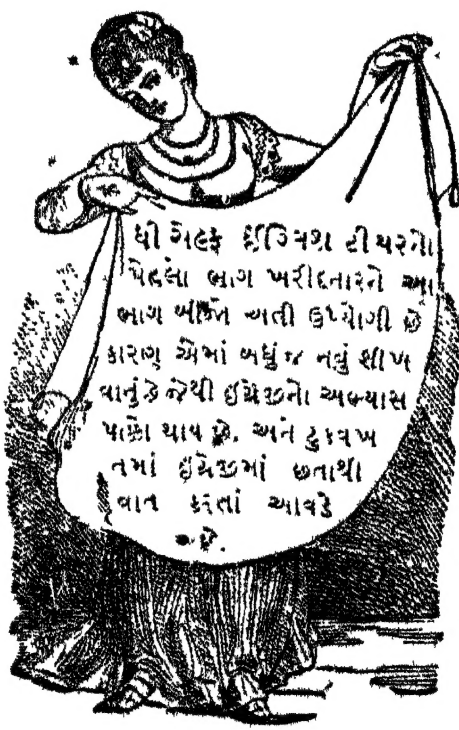 ધી સેલ્ફ ઈંગ્લિશ ટીચરનો
પેહલા ભાગ ખરીદનારને આ
ભાગ બીજો અતી ઉપ્યોગી છે
કારણ એમાં બધું જ નવું શીખ
વાનુંછે જેથી ઈંગ્રેજીનો અભ્યાસ
પાકો થાય છે. અને ટુકવખ
તમાં ઈંગ્રેજીમાં છતાથી
વાત કરતાં આવડે
છે.